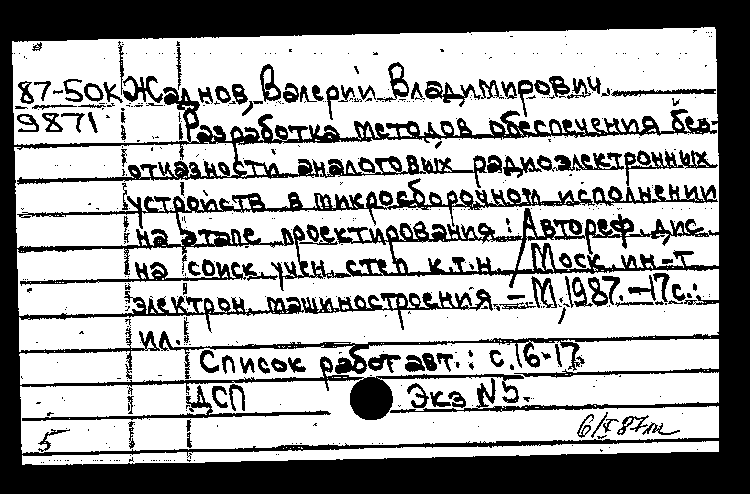 87-50К Жаднов, Валерий Владимирович.
9871 Разработка методов обеспечения без-
отказности аналоговых радиоэлектронных
устройств в микросборочном исполнении
на этапе проектирования: Автореф. дис.
на соиск. учен. степ к.т.н. / Моск. ин-т
электрон. машиностроения - М, 1987. - 17с.:
ил.
Список работ авт.: с.16-17.
ДСП Экз N5.
5